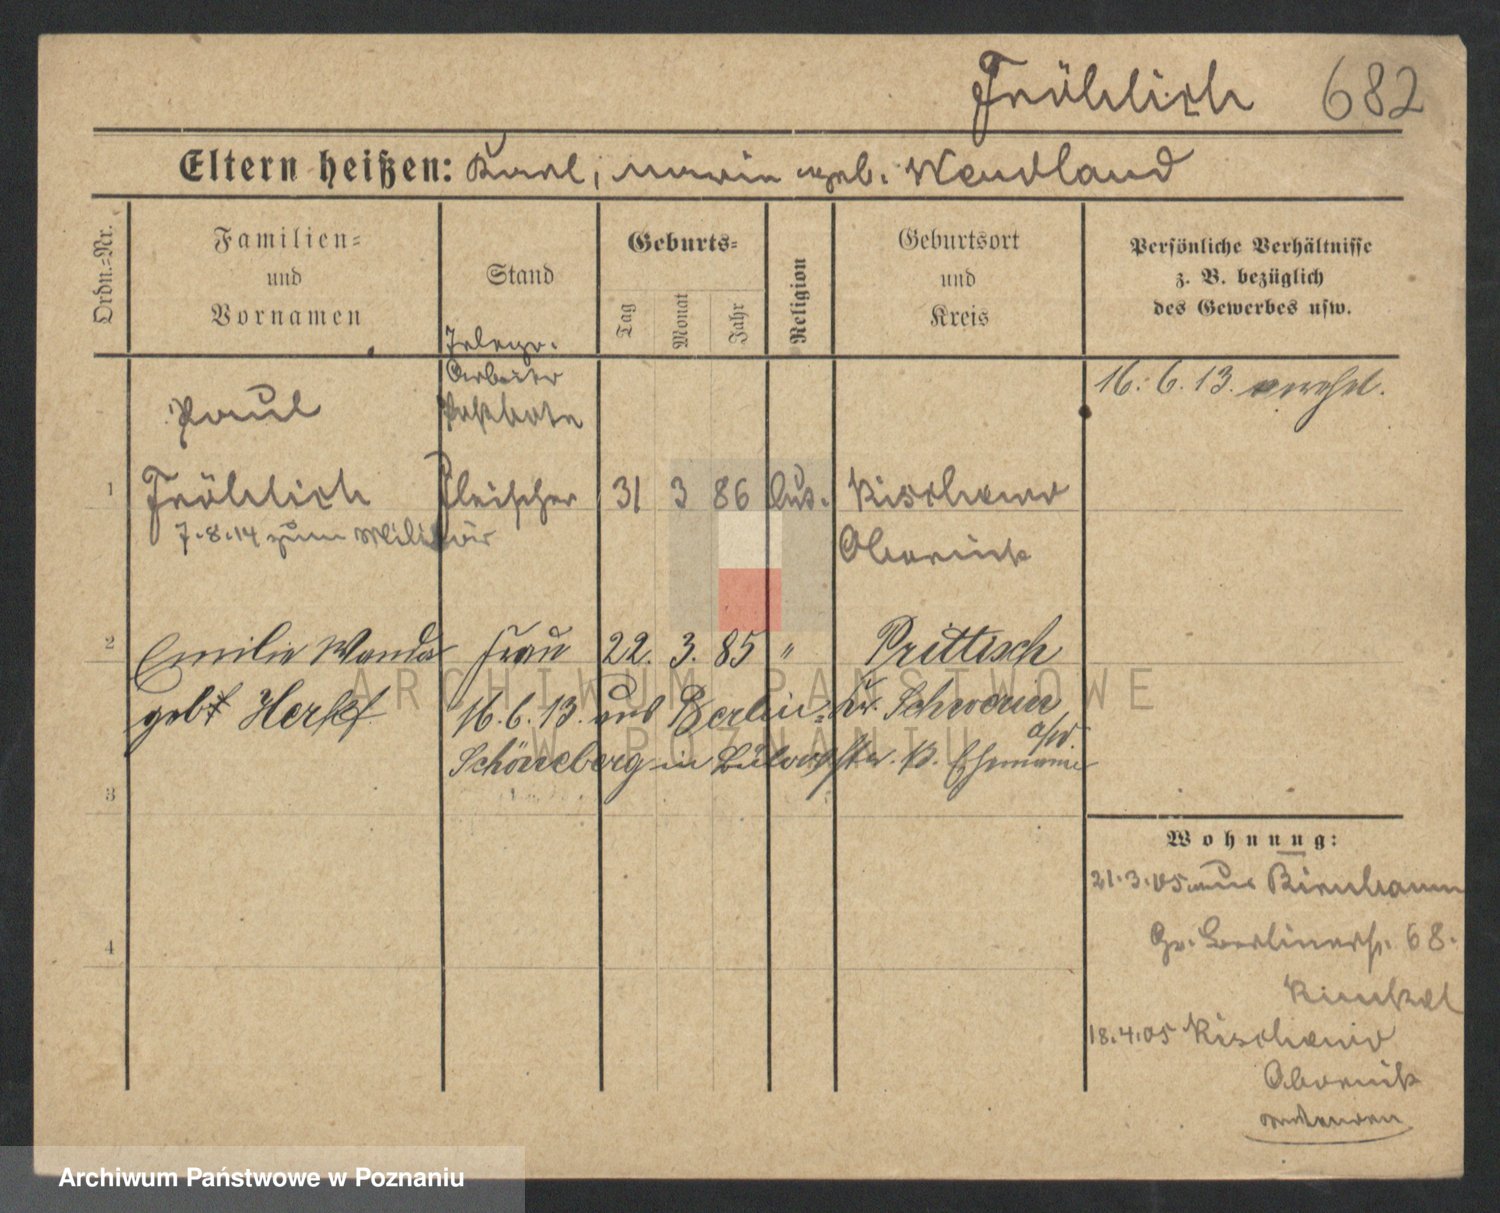 Fröhlich 682
Eltern heißen: Karl, Marie geb. Wendland
Ordn.=Nr.
Familien=
und
Vornamen
Stand
Geburts=
Tag
Monat
Jahr
Religion
Geburtsort
und
Kreis
Persönliche Verhältnisse
z. B. bezüglich
des Gewerbes usw.
Telegr.
Arbeiter
Postbote
16. 6. 13. verehel.
Paul
1 Fröhlich Fleischer 31 3 86 Obornik
7.8.14 zum Militär
2 Emilie Wanda Frau 22. 3. 85 " Prittisch
geb. 16. 6. 13. aus Berlin= Kr. Schwerin
a/W.
Schöneberg in z. Ehemann
3
4
Wohnung:
21.3.05 aus Birnbaum
Gr. Berlinerstr. 68.
18.4.05
Obornik
ARCHIWUM PAŃSTWOWE
W POZNANIU
Archiwum Państwowe w Poznaniu